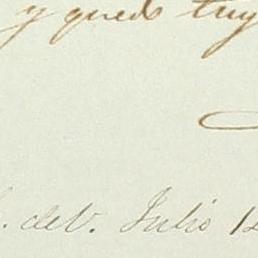 y quedo tuy
. de V. Julio 12